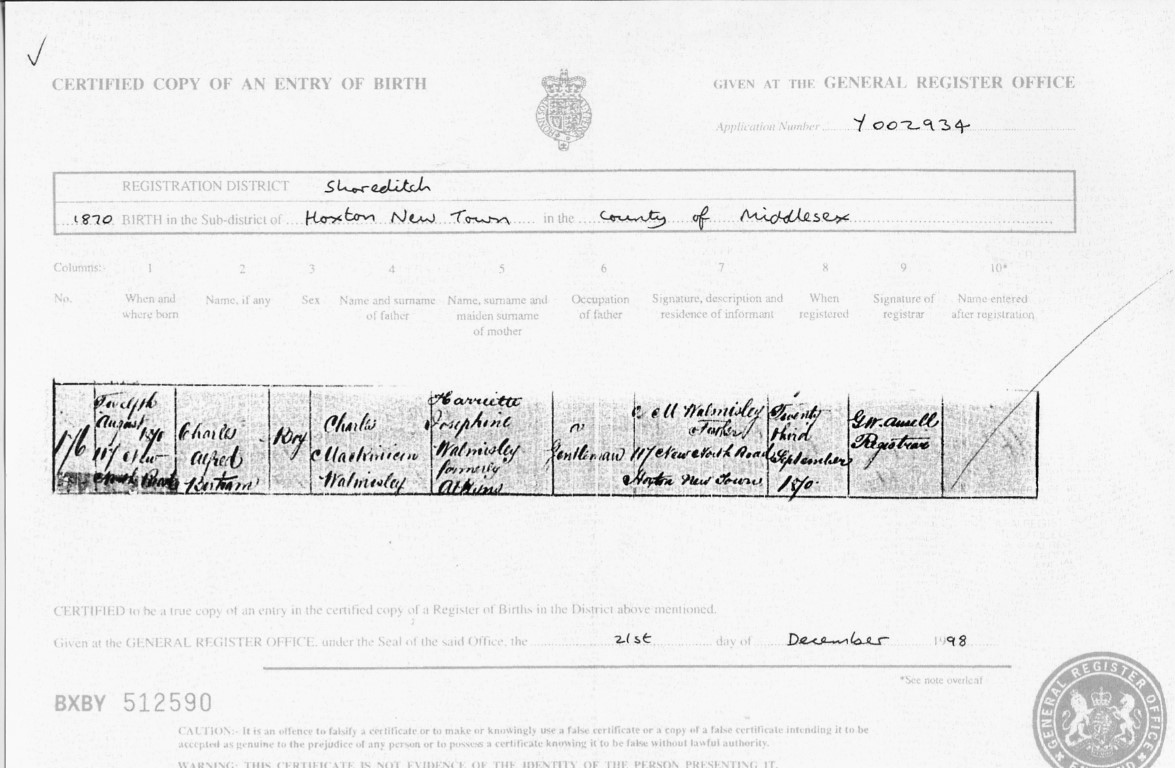 CERTIFIED COPY OF AN ENTRY OF BIRTH
GIVEN AT THE GENERAL REGISTER OFFICE
Application Number Y002934
REGISTRATION DISTRICT Shoreditch
1870 BIRTH in the Sub-district of Hoxton New Town in the County of Middlesex
Columns:- 1 2 3 4 5 6 7 8 9 10*
No. When and where born Name, if any Sex Name and surname of father Name, surname and maiden surname of mother Occupation of father Signature, description and residence of informant When registered Signature of registrar Name entered after registration
176
Twelfth
August 1870
117 New
North Road
Charles
Alfred
Bertram
Boy
Charles
Walmisley
Harriette
Josephine
Walmisley
formerly
Atkins
Gentleman
C M Walmisley
Father
117 New North Road
Hoxton New Town
Twenty
third
September
1870
Registrar
CERTIFIED to be a true copy of an entry in the certified copy of a Register of Births in the District above mentioned.
Given at the GENERAL REGISTER OFFICE, under the Seal of the said Office, the 21st day of December 1998
*See note overleaf
BXBY 512590
CAUTION:- It is an offence to falsify a certificate or to make or knowingly use a false certificate or a copy of a false certificate intending it to be
accepted as genuine to the prejudice of any person or to possess a certificate knowing it to be false without lawful authority.
WARNING: THIS CERTIFICATE IS NOT EVIDENCE OF THE IDENTITY OF THE PERSON PRESENTING IT.
GENERAL REGISTER OFFICE